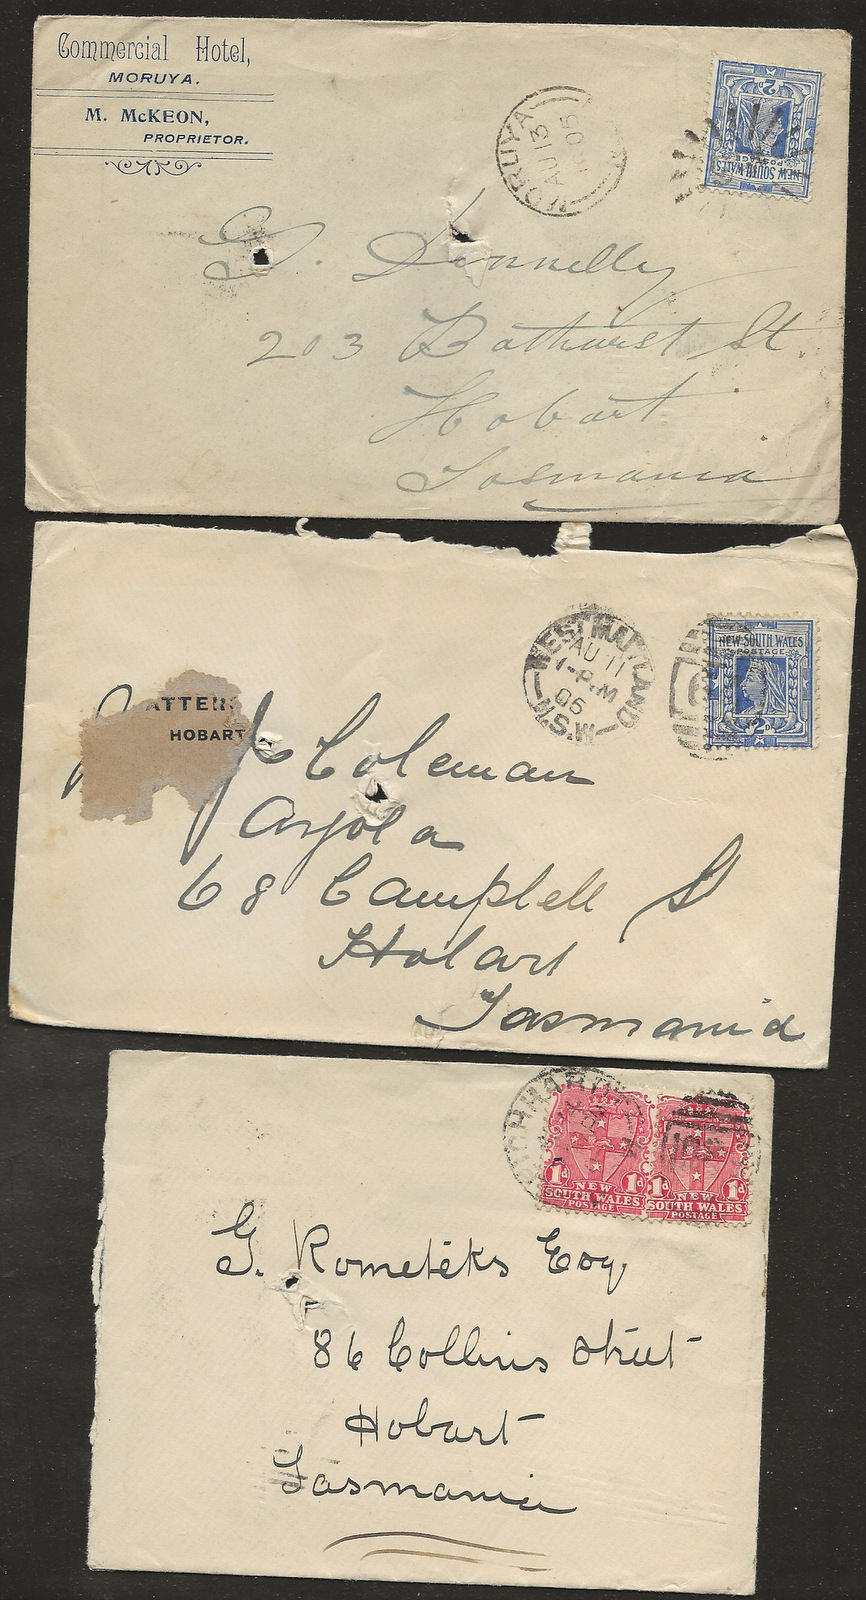 Commercial Hotel,
MORUYA.
M. McKEON,
PROPRIETOR.
MORUYA
AU 13
05
2D
POSTAGE
NEW SOUTH WALES
Donnelly
203 Bathurst St.
Hobart
Tasmania
WEST MAITLAND
AU 11
1-P.M
05
N.S.W
NEW SOUTH WALES
POSTAGE
2D
ATTERS
HOBART
Coleman
68 Campbell St
Hobart
Tasmania
1d 1d
NEW
SOUTH WALES
POSTAGE
1d 1d
NEW
SOUTH WALES
POSTAGE
G. Rometéks Esq
86 Collins Street
Hobart
Tasmania